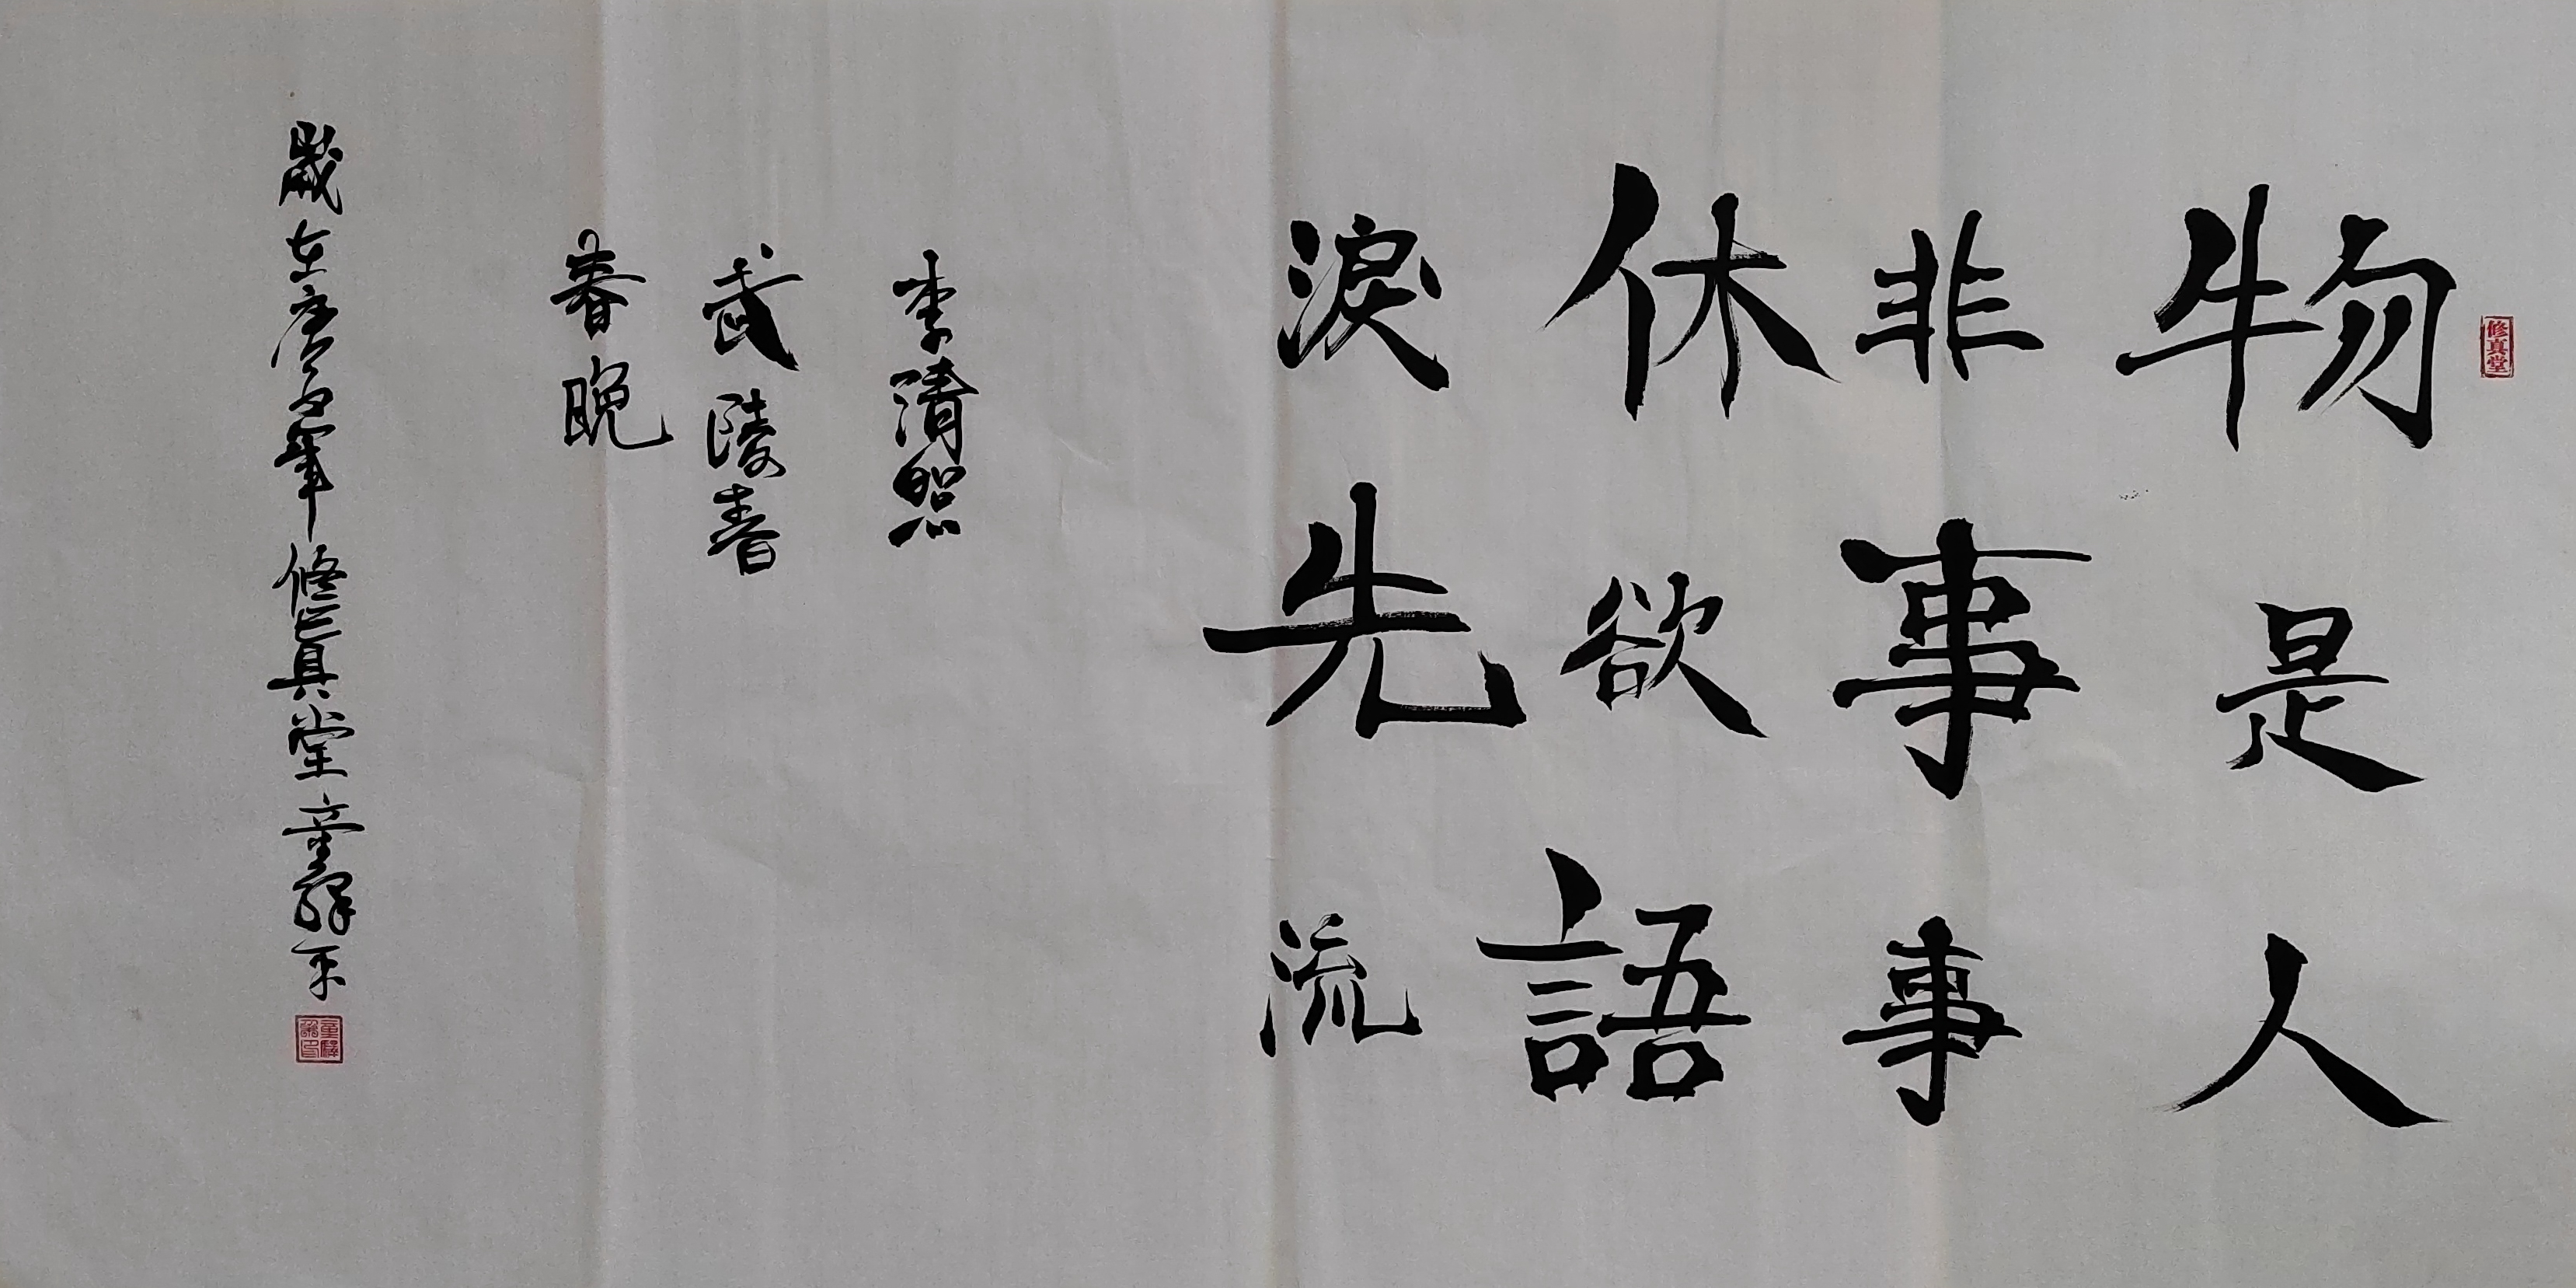 修真堂
物是人
非事事
休欲語
淚先流
李清照
武陵春
春晚
歲在庚年修真堂童